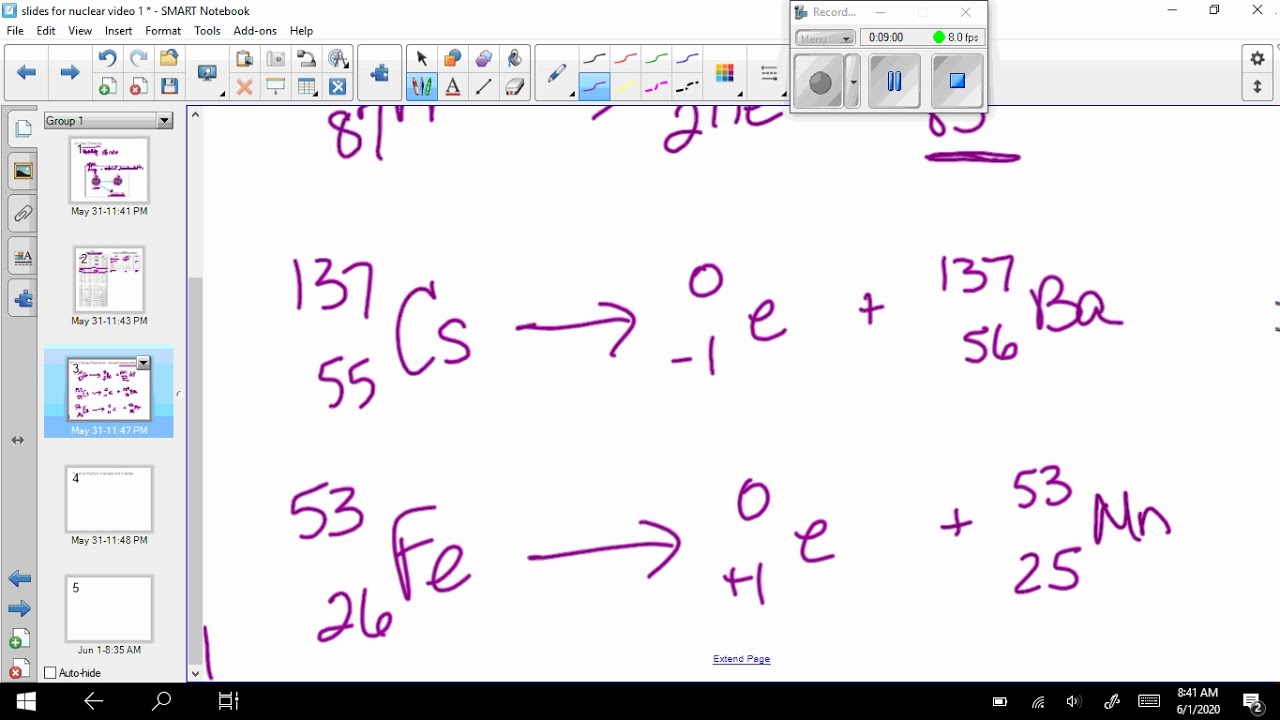 slides for nuclear video 1 * - SMART Notebook
Record...
File Edit View Insert Format Tools Add-ons
Menu 0:09:00 8.0 fps
Group 1
1
May 31-11:41 PM
2
May 31-11:43 PM
3
May 31-11:47 PM
4
May 31-11:48 PM
5
Jun 1-8:35 AM
Auto-hide
87 2He 85
137 0 137
Cs → e + Ba
55 -1 56
53 0 53
Fe → e + Mn
26 +1 25
Extend Page
8:41 AM
6/1/2020
2